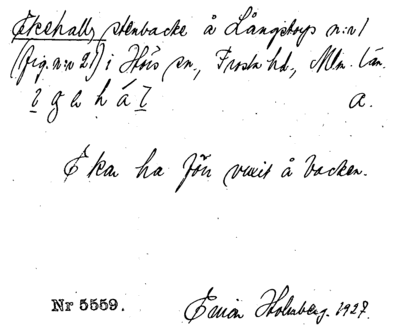 Ekshall, stenbacke å Långstorps n:r 1
(fig. n:r 21) i Hörs sn., Frosta hd., Mlm. län.
a.
Ekar ha förr vuxit å backen.
Nr 5559. Holmberg. 1927.